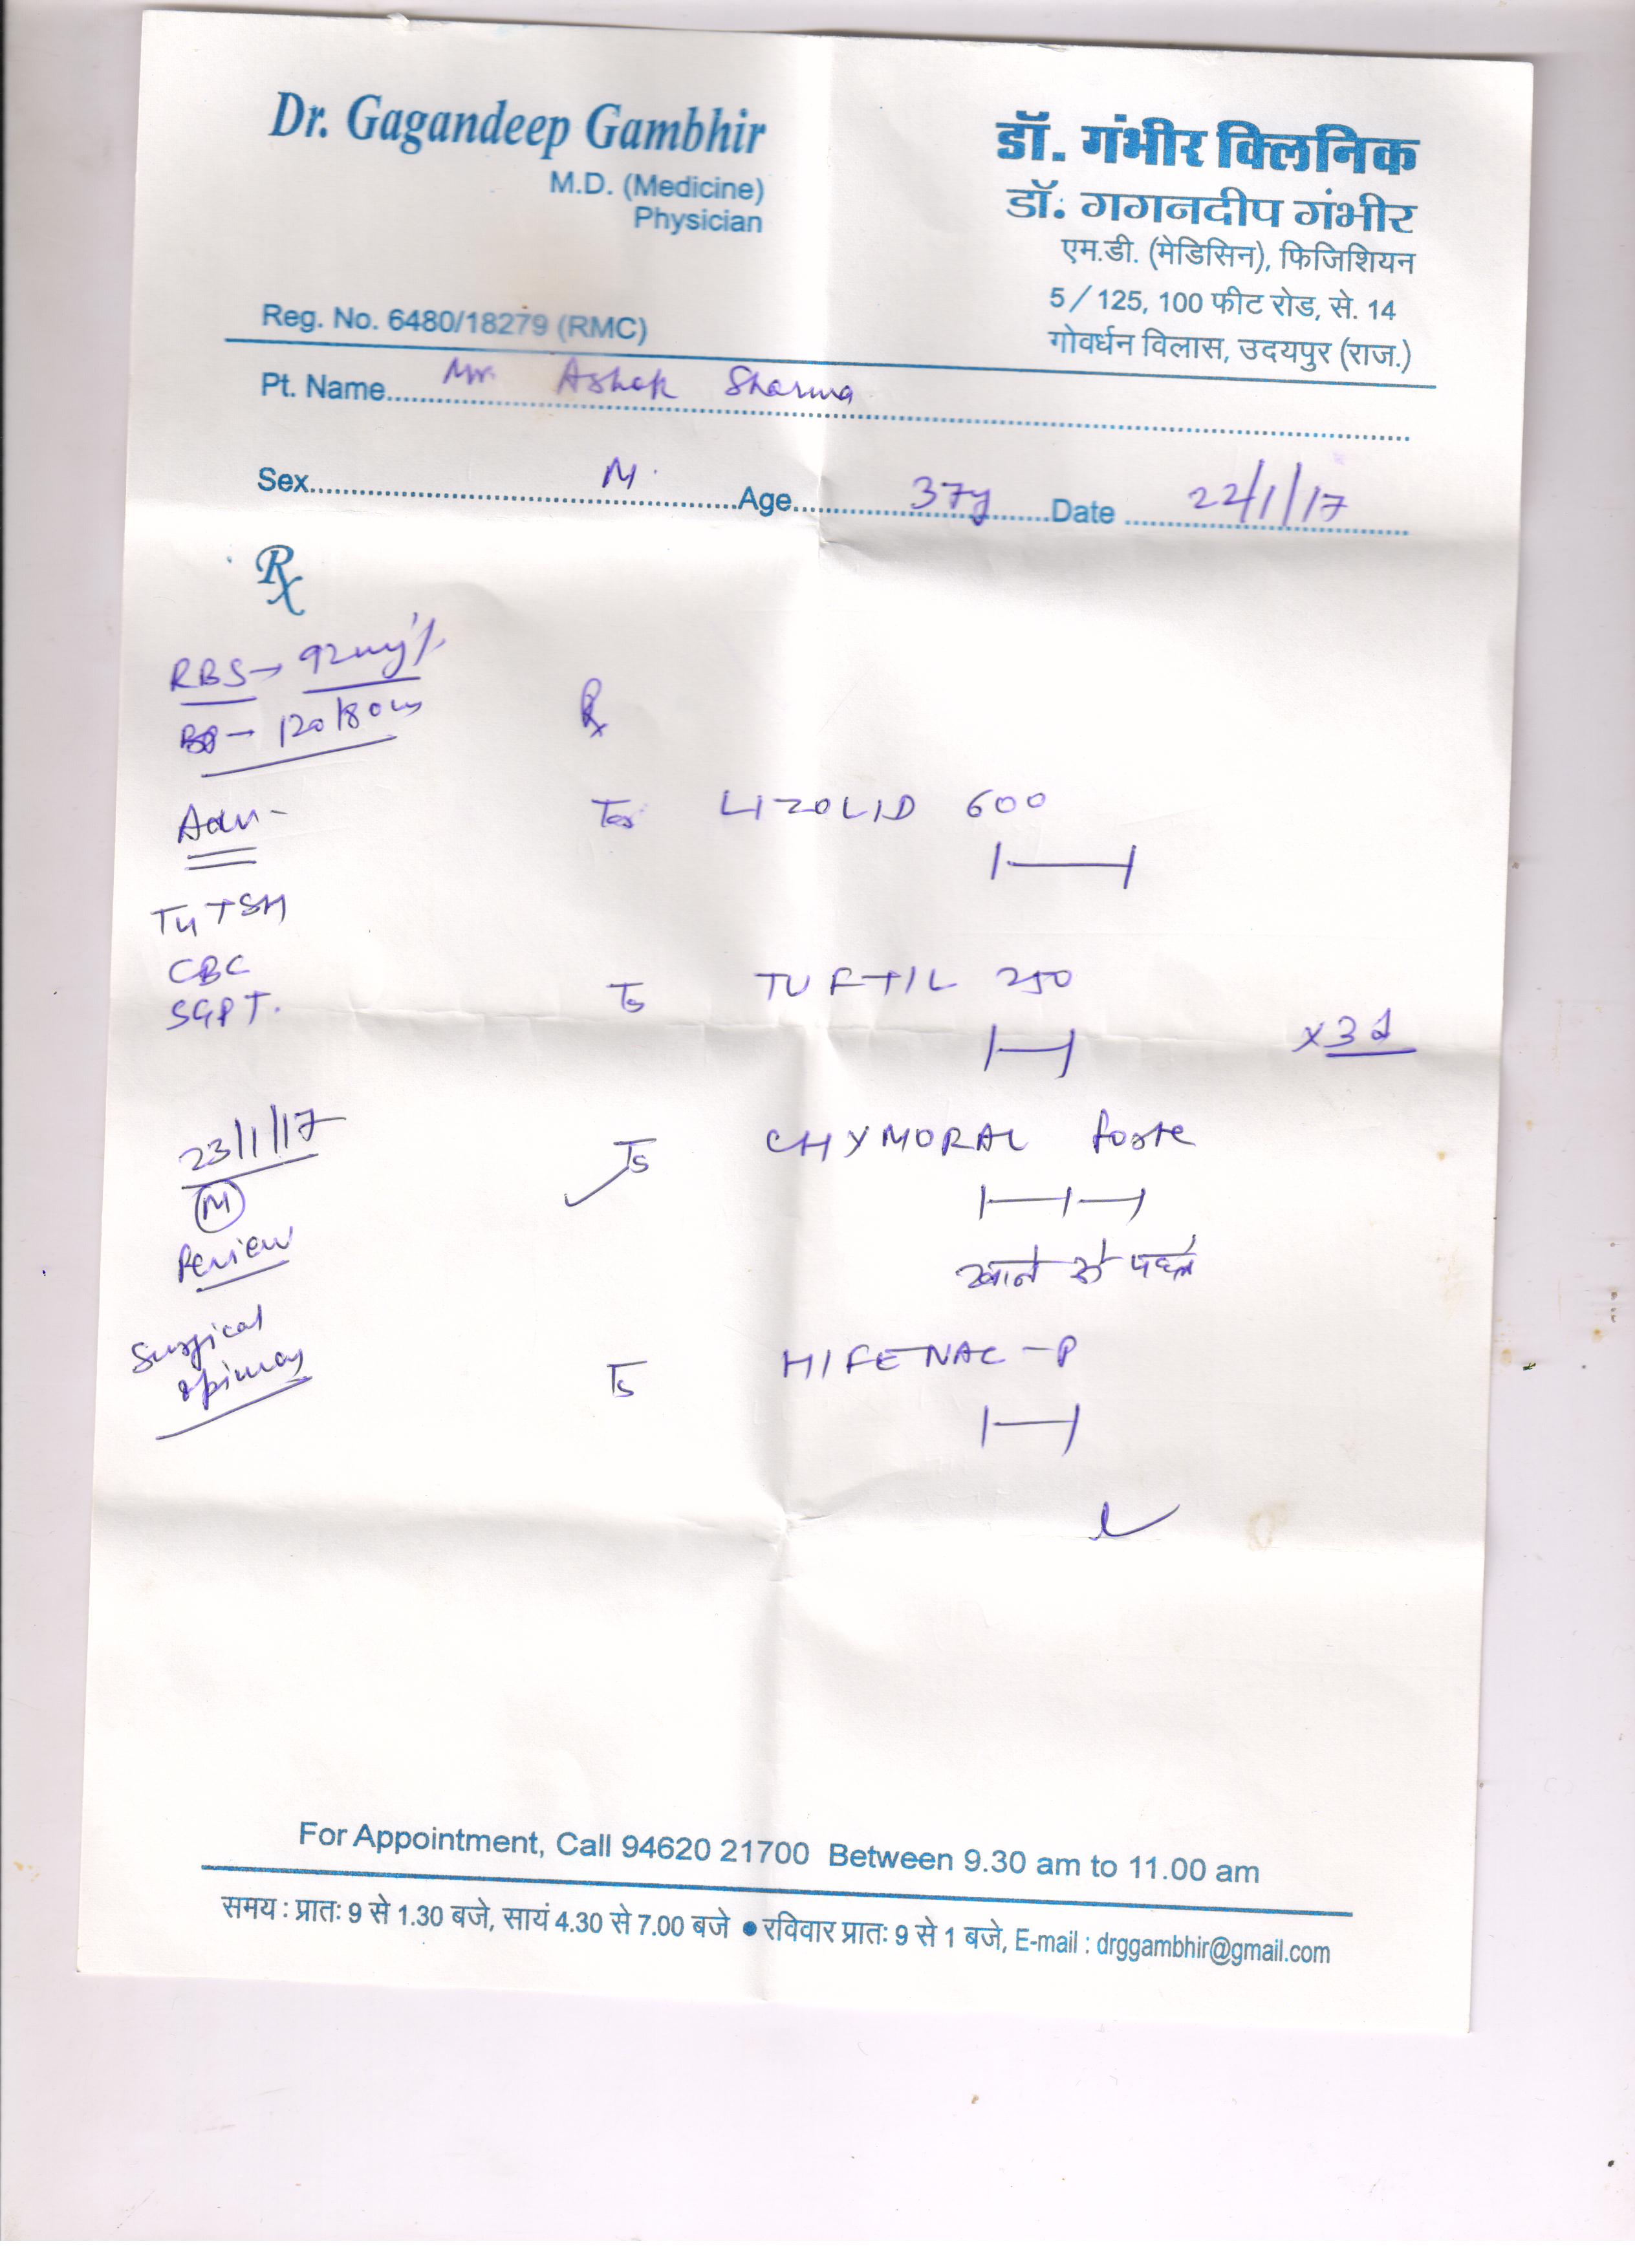 Dr. Gagandeep Gambhir
M.D. (Medicine)
Physician
Reg. No. 6480/18279 (RMC)
डॉ. गंभीर क्लिनिक
डॉ. गगनदीप गंभीर
एम.डी. (मेडिसिन), फिजिशियन
5 / 125, 100 फीट रोड, से. 14
गोवर्धन विलास, उदयपुर (राज.)
Pt. Name Mr. Ashok Sharma
Sex M. Age 37y Date 22/1/17
Rx
RBS → 92mg%
120/80
Rx
Adv -
LIZOLID 600
T4 TSH
CBC
TUFTIL 250
SGPT.
x 3d
23/1/17
CHYMORAL forte
M
Review
खाने से पहले
Surgical
opinion
HIFENAC - P
For Appointment, Call 94620 21700 Between 9.30 am to 11.00 am
समय : प्रातः 9 से 1.30 बजे, सायं 4.30 से 7.00 बजे ● रविवार प्रातः 9 से 1 बजे, E-mail : drggambhir@gmail.com